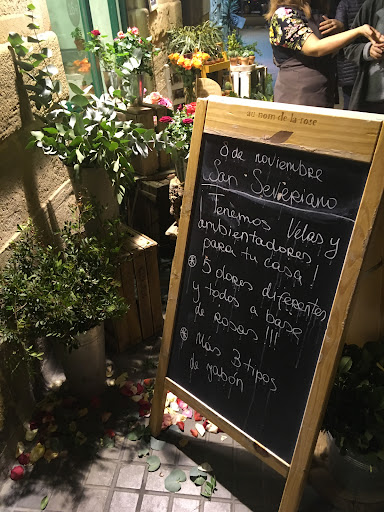 au nom de la rose
9 de noviembre
San Severiano
Tenemos Velas y
ambientadores
para tu casa!
* 5 olores diferentes
y todos a base
de rosas!!!
* Más 3 tipos
de jabón